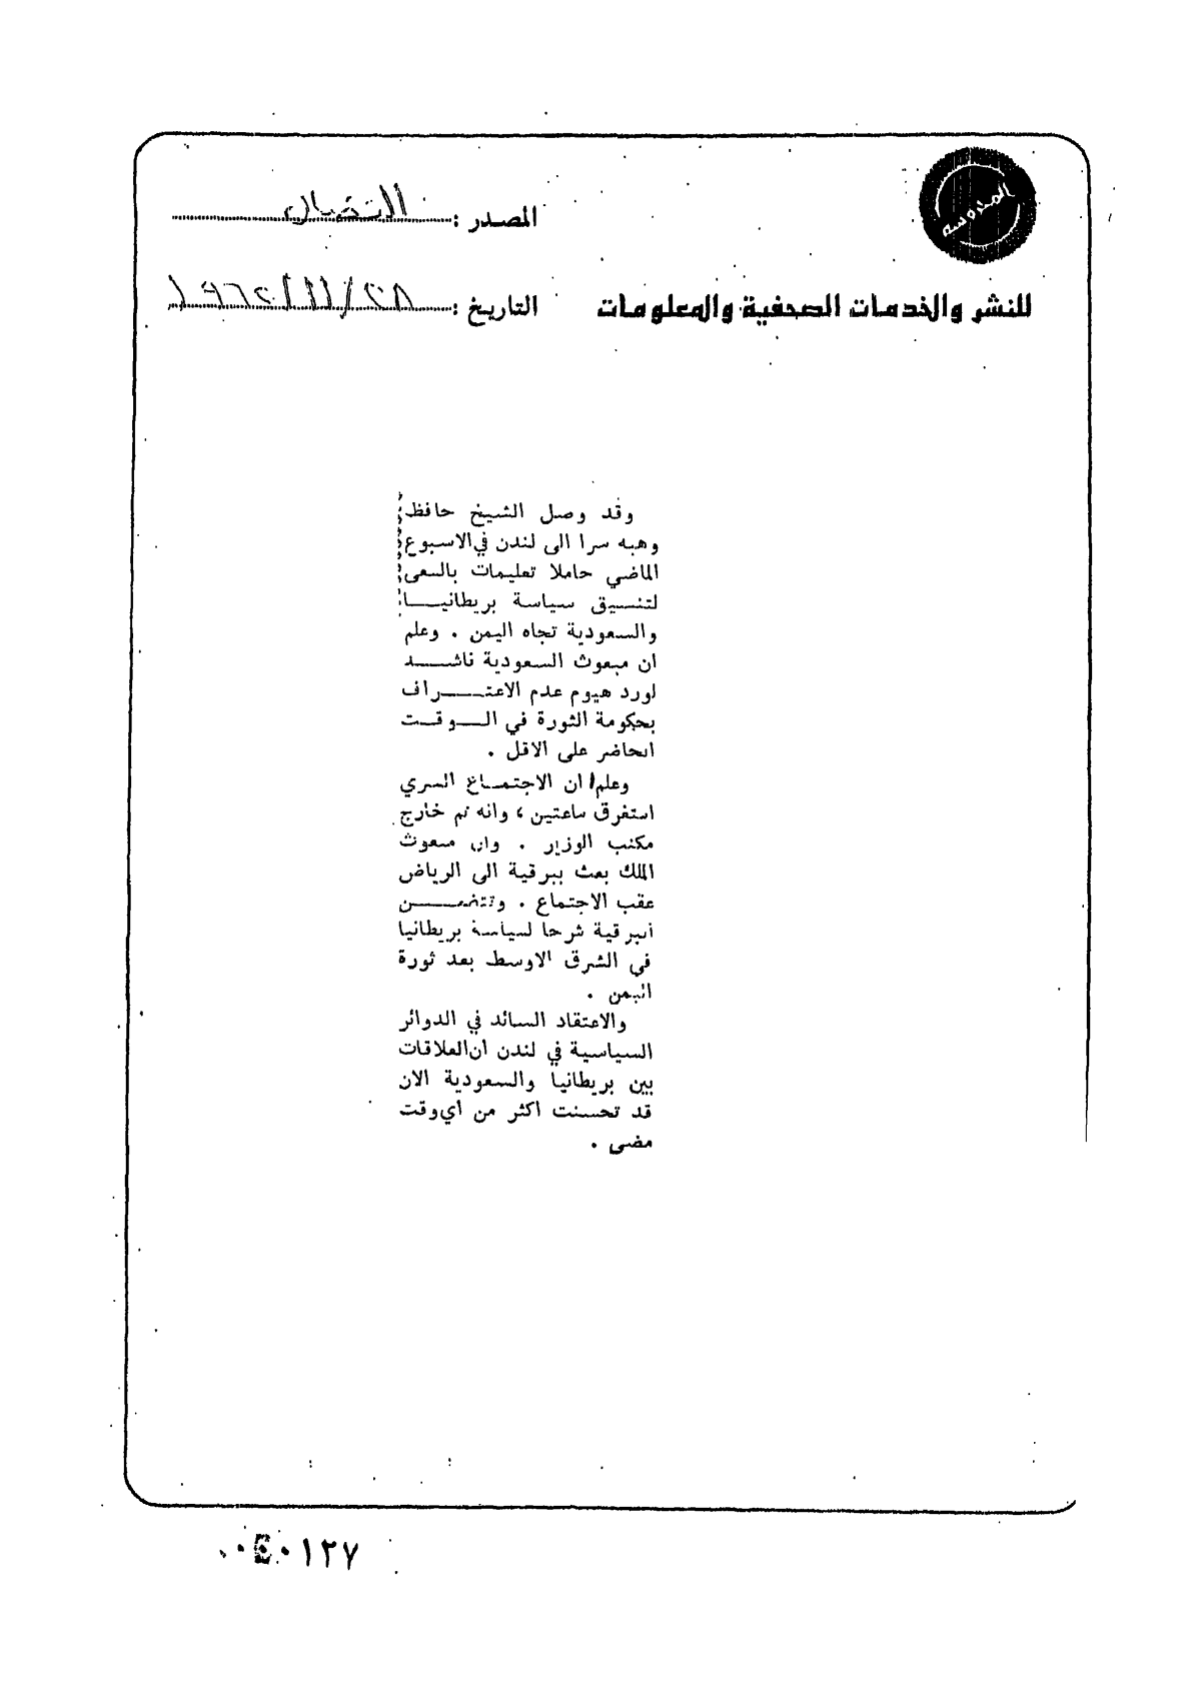 المدوسه
المصدر : النضال
للنشر والخدمات الصحفية والمعلومات
التاريخ : ٢٨/١١/١٩٦٢
وقد وصل الشيخ حافظ
وهبه سرا الى لندن في الاسبوع
الماضي حاملا تعليمات بالسعى
لتنسيق سياسة بريطانيا
والسعودية تجاه اليمن . وعلم
ان مبعوث السعودية ناشد
لورد هيوم عدم الاعتراف
بحكومة الثورة في الوقت
الحاضر على الاقل .
وعلم ان الاجتماع السري
استغرق ساعتين ، وانه تم خارج
مكتب الوزير . وان مبعوث
الملك بعث ببرقية الى الرياض
عقب الاجتماع . وتتضمن
البرقية شرحا لسياسة بريطانيا
في الشرق الاوسط بعد ثورة
اليمن .
والاعتقاد السائد في الدوائر
السياسية في لندن ان العلاقات
بين بريطانيا والسعودية الان
قد تحسنت اكثر من اي وقت
مضى .
٠١٢٧